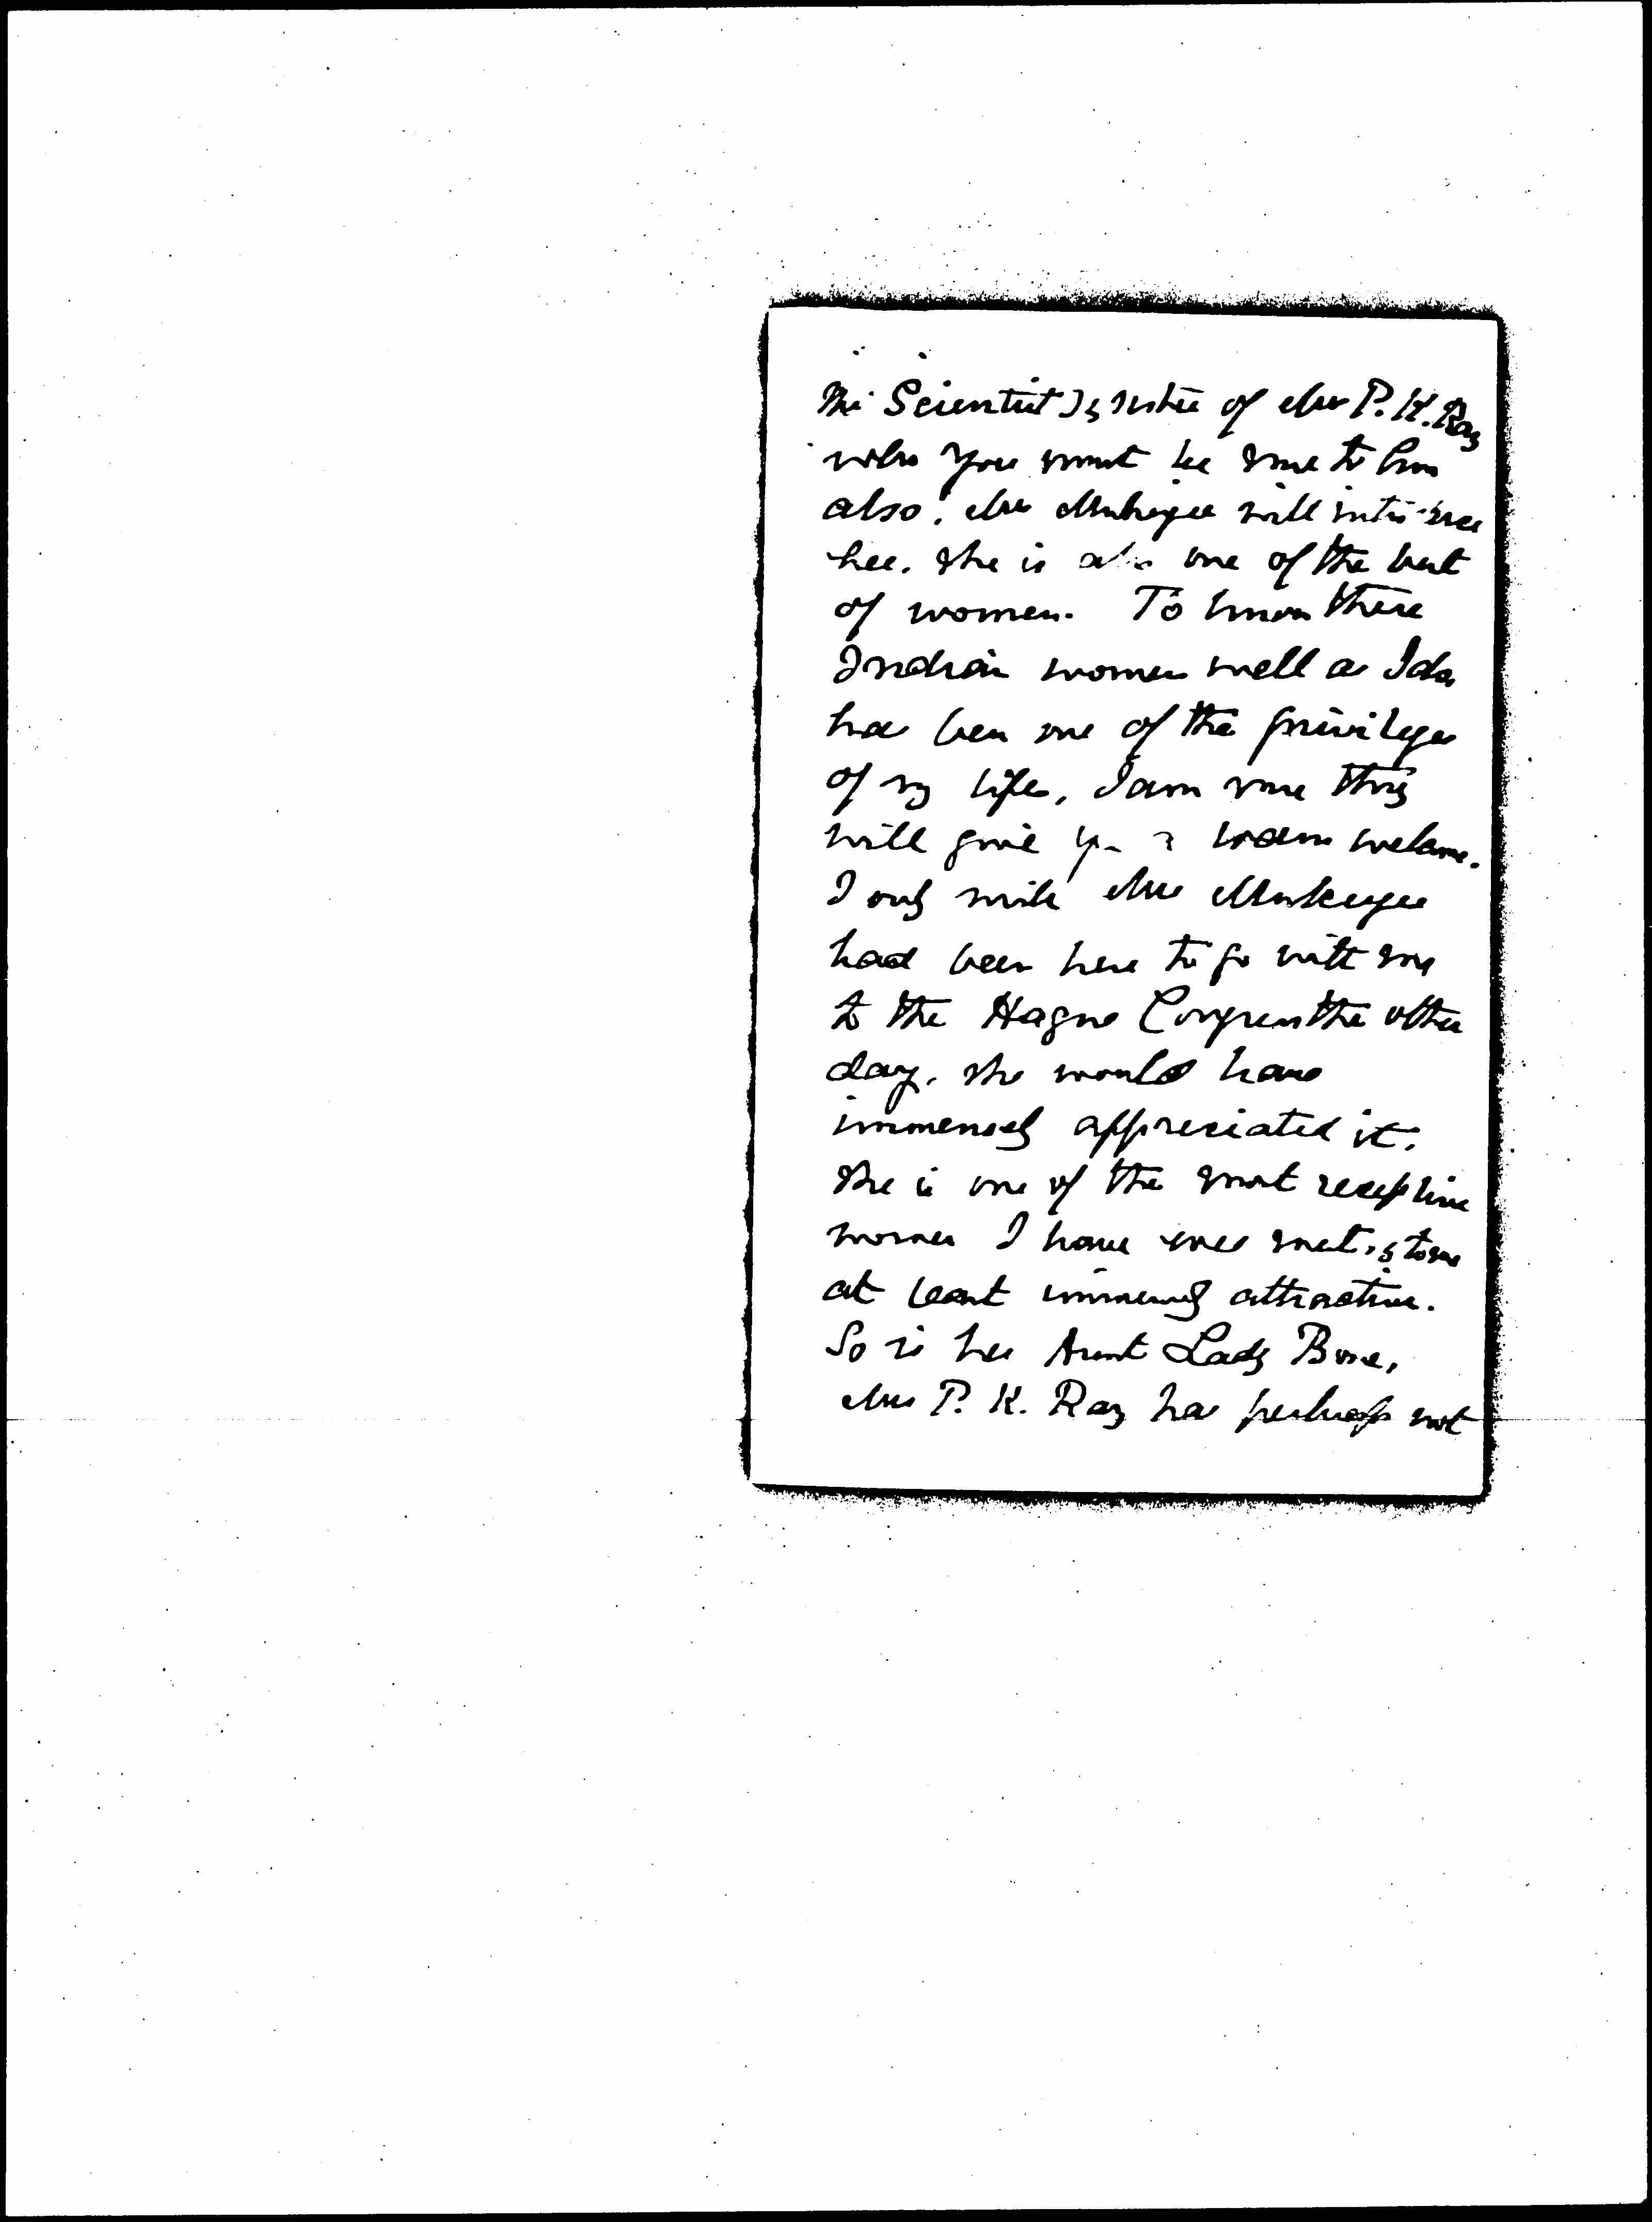 the Scientist) is sister of Mrs P. K. Ray
who you must be sure to know
also. Mrs Mukerjee will introduce
her. She is also one of the best
of women. To know these
Indian women well as I do,
has been one of the privileges
of my life, I am sure they
will give you a warm welcome.
I only wish Mrs Mukerjee
had been here to go with me
to the Hague Congress the other
day. She would have
immensely appreciated it.
She is one of the most receptive
women I have ever met, & to me
at least immensely attractive.
So is her Aunt Lady Bose,
Mrs P. K. Ray has perhaps not